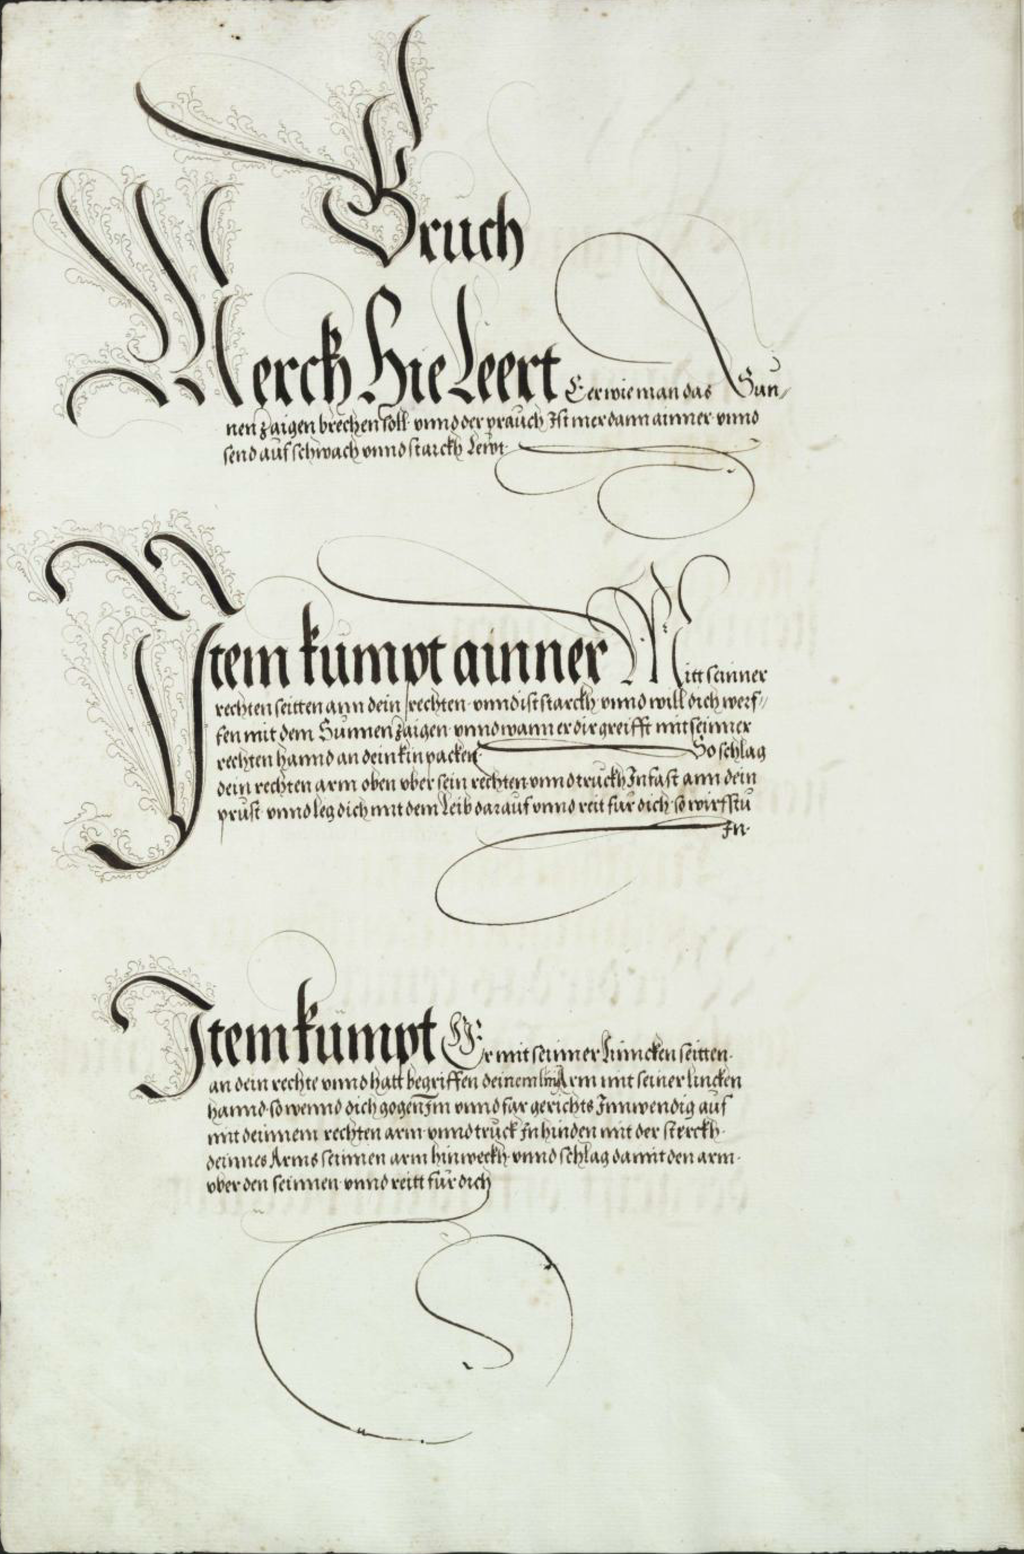 Bruch
Merckh Hie Leert Eer wie man das Sun/
nen Zaigen brechen soll · vnnd der prauch Ist mer dann ainner · vnnd
send auf schwach vnnd starckh Lewt ·
Item kumpt ainner Mitt seinner
rechten seitten ann dein rechten · vnnd ist starckh · vnnd will dich werf//
fen mit dem Sunnen Zaigen · vnnd wann er dir greifft mit seinner
rechten hannd an dein kinpacken · So schlag
dein rechten arm oben vber sein rechten · vnnd truckh In fast ann dein
prust · vnnd leg dich mit dem Leib darauf vnnd reit für dich · so wirfstu
In ·
Item kumpt Er mit seinner Linncken seitten ·
an dein rechte vnnd hatt begriffen deinem lincken Arm mit seiner lincken
hannd · so wennd dich gogen Im vnnd far gerichts Innwendig auf
mit deinnem rechten arm · vnnd truck In hinden mit der sterckh ·
deinnes Arms seinnen arm hinweckh · vnnd schlag damit den arm ·
vber den seinnen · vnnd reitt für dich